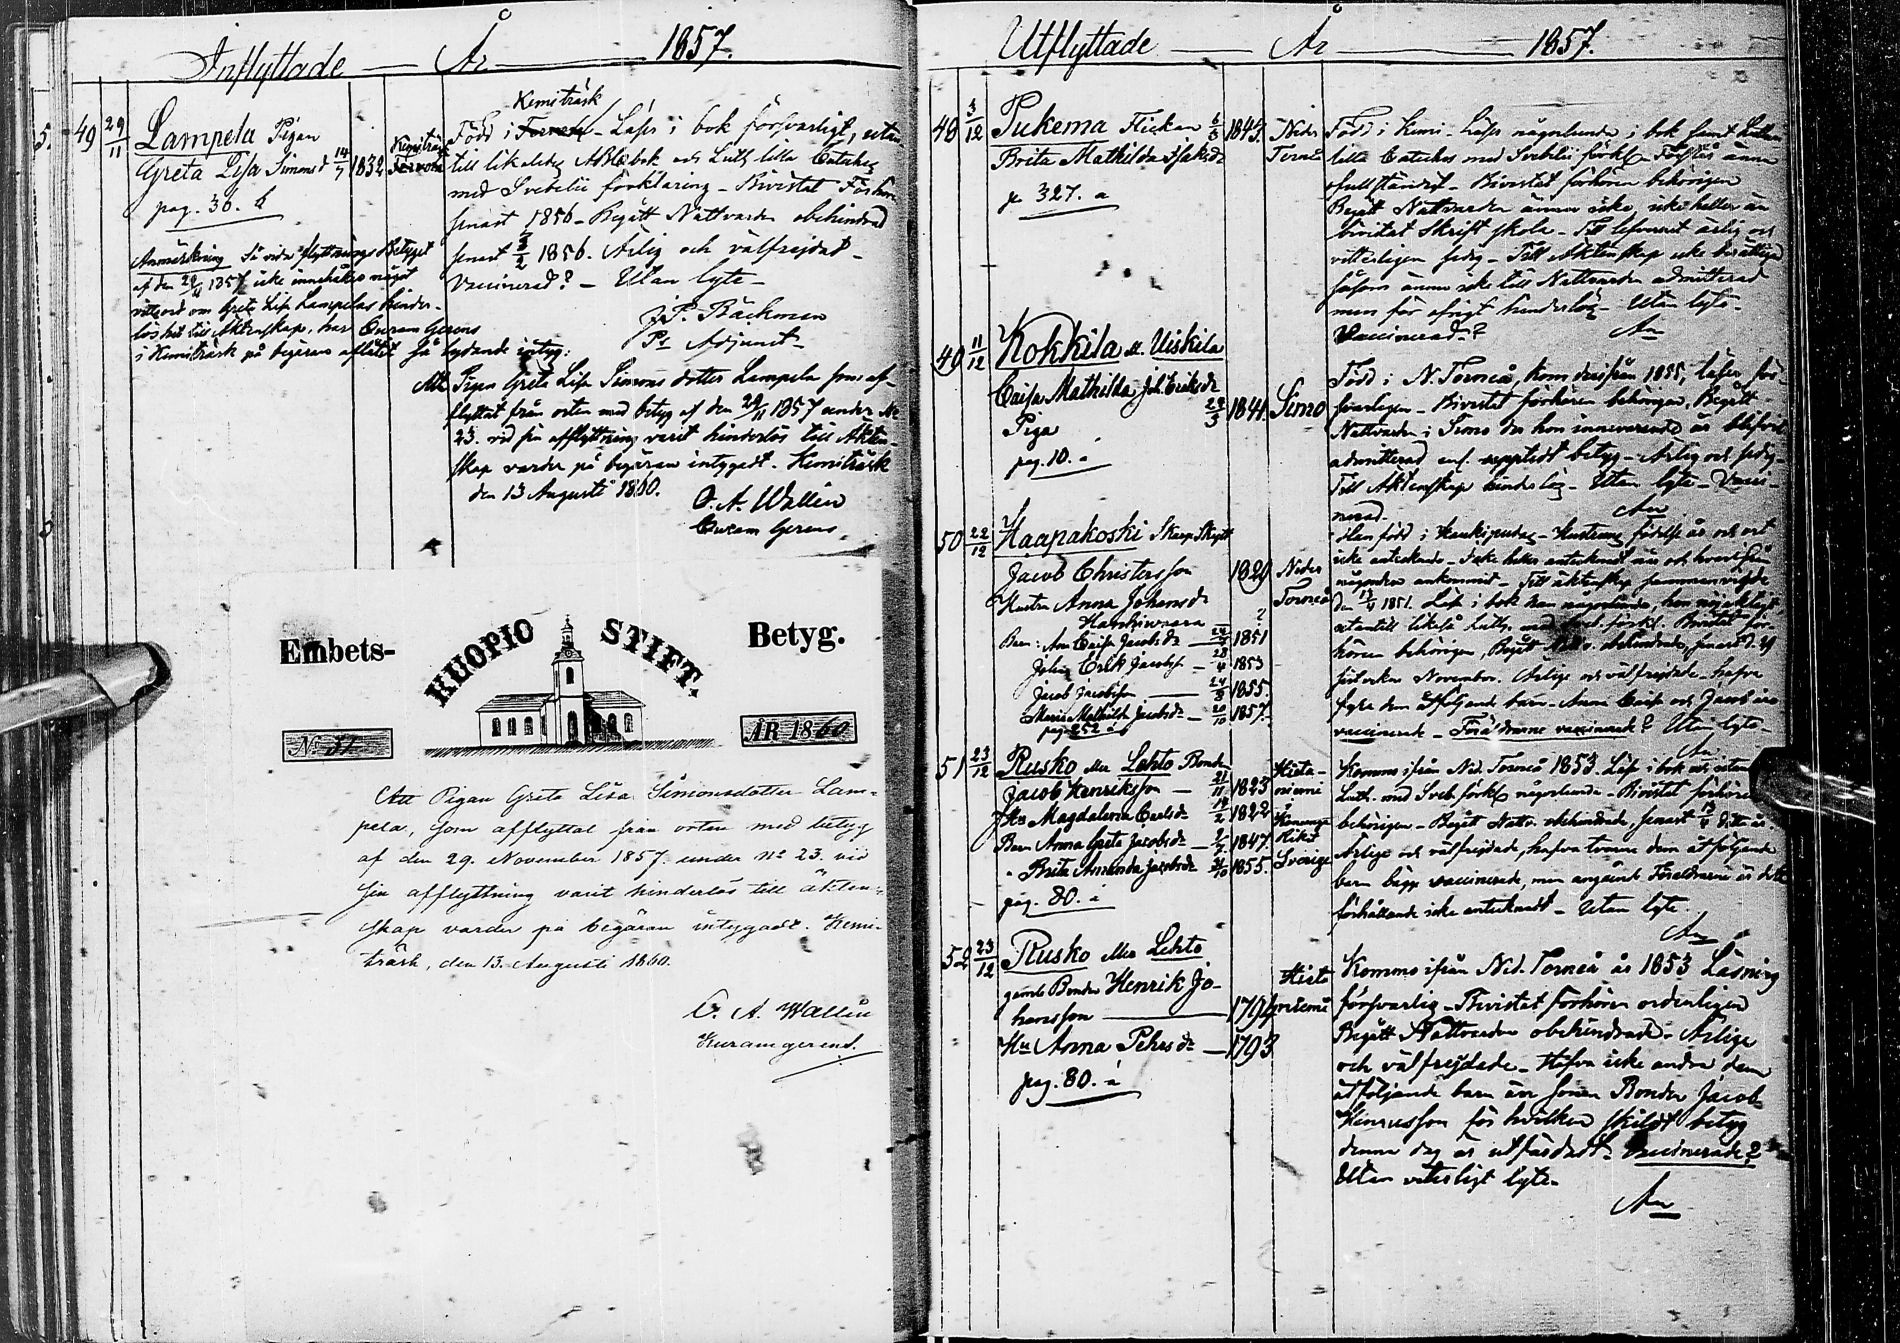 Inflyttade — År — 1857.
5. 49 29/11 Lampela Pigan
Greta Lisa Simonsd 14/7 1832 Kemiträsk
pag. 36. b
Kemiträsk
Född i Torneå – Läser i bok försvarligt, utan
till likaledes ABCbok och Luth. lilla Cateches
med Svebelii förklaring – Bivistat Förhör
senast 1856 – Begått Nattvarden obehindrad
senast 1856. Ärlig och välfrejdat –
Vaccinerad? – Utan lyte –
J. P. Bäckman
Ps Adjunct
Anmärkning Så vida flyttningsbetyget
af den 29/11 1857 icke innehåller något
vittsord om Greta Lisa Lampelas hinder-
löshet till Äktenskap, har Curam Gerens
i Kemiträsk på begäran aflåtit så lydande intyg:
Att Pigan Greta Lisa Simonsdotter Lampela som af-
flyttat från orten med betyg af den 29/11 1857 under No
23. vid sin afflyttning varit hinderlös till Äkten-
skap varder på begäran intygadt. Kemiträsk
den 13 Augusti 1860.
O. A. Wallin
Curam Gerens
Embets-
KUOPIO STIFT.
Betyg.
No 31
ÅR 1860
Att Pigan Greta Lisa Simonsdotter Lam-
pela, som afflyttat från orten med betyg
af den 29. November 1857. under No 23. vid
sin afflyttning varit hinderlös till äkten-
skap varder på begäran intygadt. Kemi-
träsk, den 13. Augusti 1860.
O. A. Wallin
Kuramgerens.
Utflyttade — År — 1857.
48 3/12 Pukema Flickan 1843. Neder
Brita Mathilda Isaksdr Torneå
p 327. a
Född i Kemi – Läser någorlunda i bok samt Luthers
lilla Cateches med Svebelii förkl. Förstår ännu
ofullständigt – Bivistat förhören behörigen
Begått Nattvarden ännu icke, icke heller än
bivistat Skriftskola – Till lefvernet ärlig och
vitterligen sedig – Till Äktenskap icke berättigad
såsom ännu icke till Nattvarden admitterad
men för öfrigt hinderlös – Utan lyte –
Vaccinerad?
49 11/12 Kokkila el. Uiskila
Caisa Mathilda Joh. Eriksdr
Piga 1841. Simo
pag. 10. a
Född i N. Torneå, kom derifrån 1855, läser för-
svarligen – Bivistat förhören behörigen, Begått
Nattvarden i Simo der hon innevarande år blifvit
admitterad enl. uppvist betyg – Ärlig och sedig –
Till Äktenskap hinderlös – Utan lyte – Vacci-
nerad.
50 22/12 Haapakoski
Jacob Christersson 1829 Neder
Hustru Anna Johansdr ? Torneå
Barn: Ann Caisa Jacobsdr 1851
Johan Erik Jacobss 1853
Jacob Jacobsson 1855.
Maria Mathilda Jacobsdr 20/10 1857.
pag. 252 a
Han född i Haukipudas – Hustruns födelse år och ort
icke antecknade –
Till äktenskap sammanvigde
den 1851. Läs i bok han någorlunda, hon nöjaktigt,
hören behörigen, Begått obehindrade, senast d. 29
sistvikne November. Ärlige och välfrejdade – hafva
fyra dem åtföljande barn – Anna Caisa och Jacob äro
vaccinerade – Föräldrarne vaccinerade? Utan lyte –
51 23/12 Rusko eller Lehto Bonden
Jacob Henriksson – 21/11 1823
Hu Magdalena Carlsdr 1822
Barn Anna Greta Jacobsdr 1847.
Brita Amanda Jacobsdr 1855.
pag. 80. a
Hieta-
niemi
i
Konunga
Riket
Sverige
Komne ifrån Ned. Torneå 1853. Läs i bok och utan
Luth. med Sveb. förkl. någorlunda – Bivistat förhören
behörigen – Begått Nattv. obehindrade, senast detta år.
Ärlige och välfrejdade, hafva tvenne dem åtföljande
barn bägge vaccinerade, men angående Föräldrarne är detta
förhållande icke antecknadt – Utan lyte.
52 23/12 Rusko eller Lehto
gamle Bonden Henrik Jo-
hansson — 1794 Hieta
niemi
Hu Anna Pehrsdr — 1793
pag. 80. a
Komne ifrån Ned. Torneå år 1853 Läsning
försvarlig – Bivistat förhören ordentligen
Begått Nattvarden obehindrade – Ärlige
och välfrejdade – Hafva icke andra dem
åtföljande barn än sonen Bonden Jacob
Henricsson för hvilken skildt betyg
denna dag är utfärdadt – Vaccinerade?
Utan veterligt lyte –